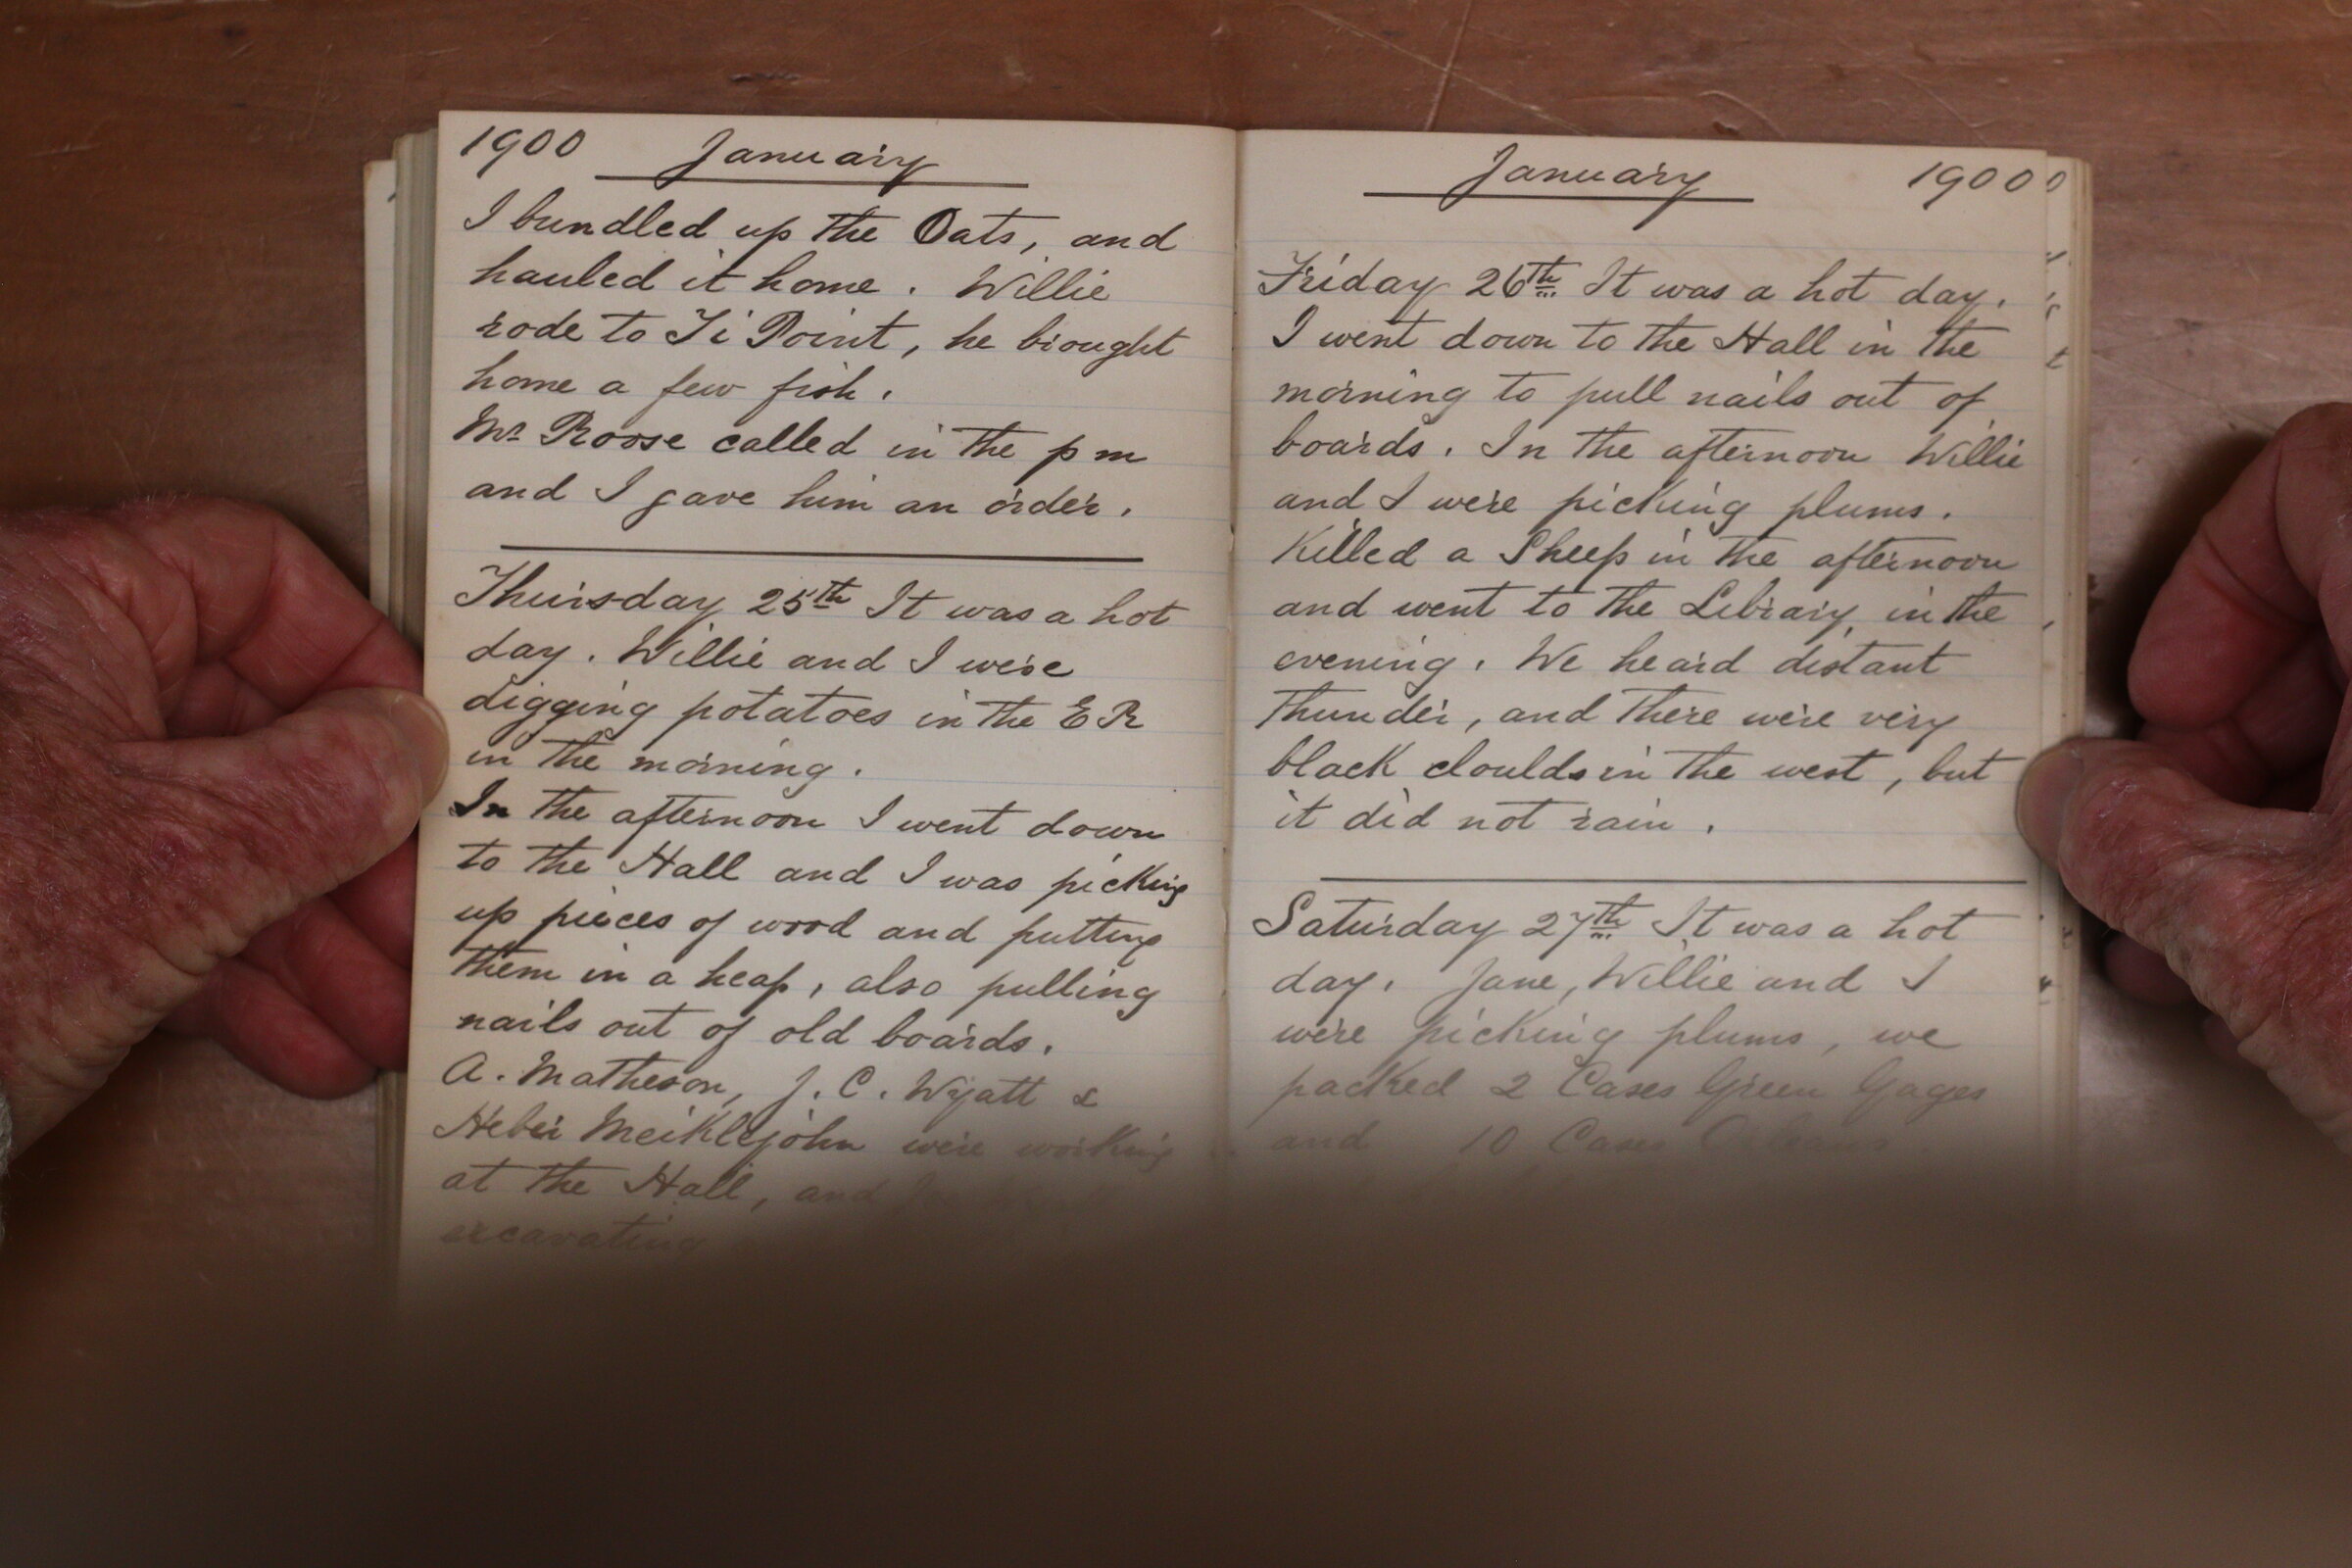 1900 January
I bundled up the Oats, and
hauled it home. Willie
rode to Ti Point, he brought
home a few fish.
Mr Roose called in the p m
and I gave him an order.
Thursday 25th It was a hot
day. Willie and I were
digging potatoes in the E R
in the morning.
In the afternoon I went down
to the Hall and I was picking
up pieces of wood and putting
them in a heap, also pulling
nails out of old boards.
A. Matheson, J. C. Wyatt &
Heber Meiklejohn were working
at the Hall, and
excavating
January 1900
Friday 26th It was a hot day.
I went down to the Hall in the
morning to pull nails out of
boards. In the afternoon Willie
and I were picking plums.
Killed a Sheep in the afternoon
and went to the Library in the
evening. We heard distant
thunder, and there were very
black cloulds in the west, but
it did not rain.
Saturday 27th It was a hot
day. Jane, Willie and I
were picking plums, we
packed 2 Cases Green Gages
and 10 Cases Orleans